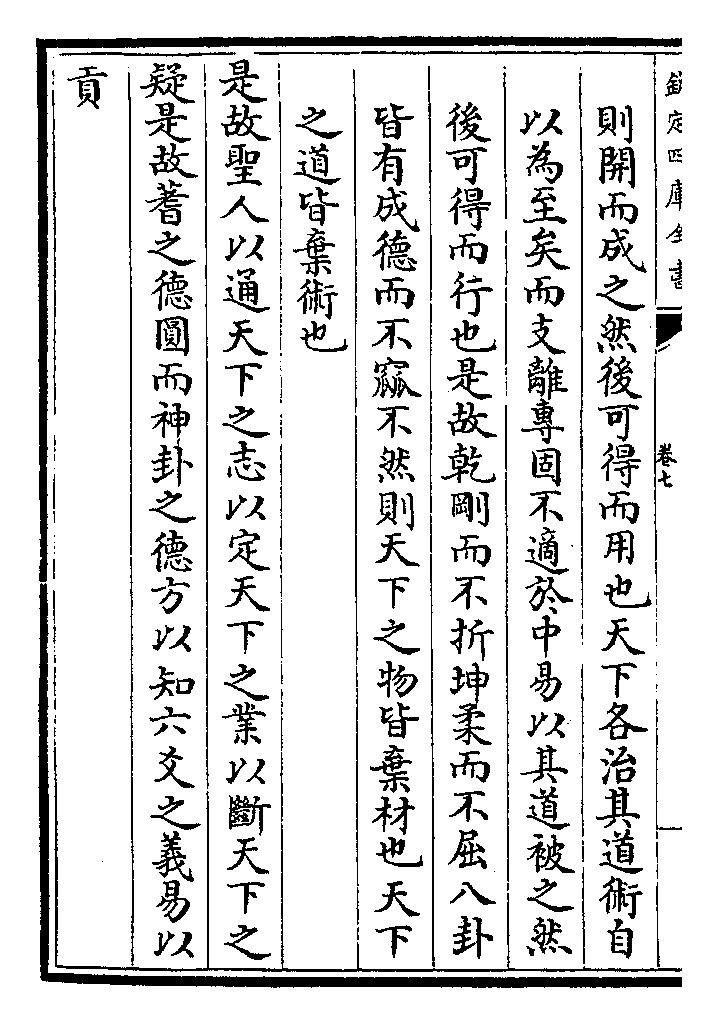 欽定四庫全書
卷七
則開而成之然後可得而用也天下各治其道術自
以為至矣而支離專固不適於中易以其道被之然
後可得而行也是故乾剛而不折坤柔而不屈八卦
皆有成德而不窳不然則天下之物皆棄材也天下
之道皆棄術也
是故聖人以通天下之志以定天下之業以斷天下之
疑是故蓍之德圓而神卦之德方以知六爻之義易以
貢